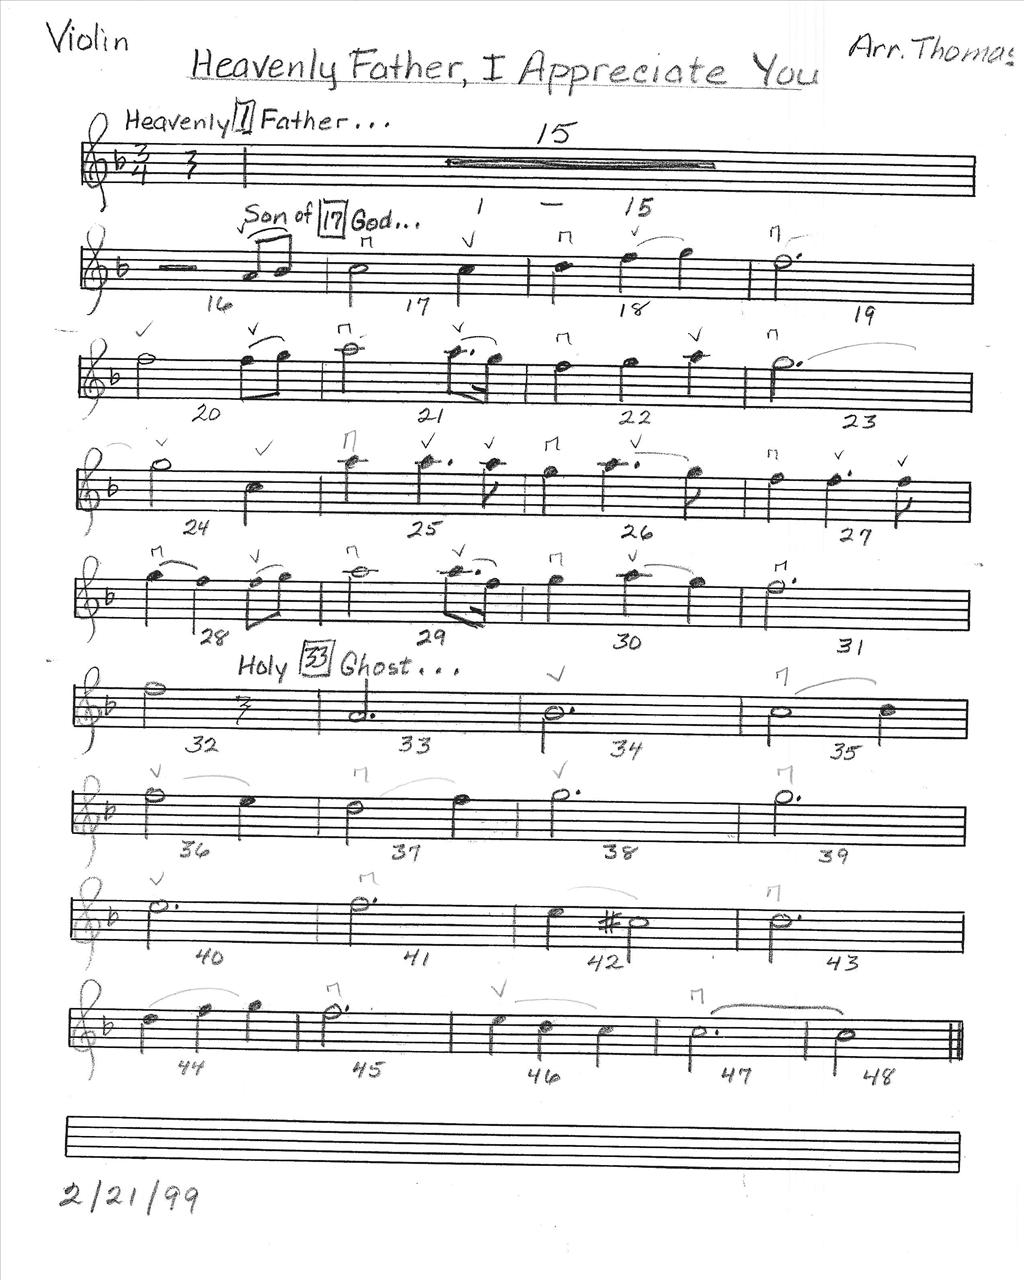 Violin
Heavenly Father, I Appreciate You
Arr. Thomas
Heavenly 1 Father...
3
4
15
1 – 15
Son of 17 God...
16 17 18 19
20 21 22 23
24 25 26 27
28 29 30 31
Holy 33 Ghost...
32 33 34 35
36 37 38 39
40 41 42 43
44 45 46 47 48
2/21/99